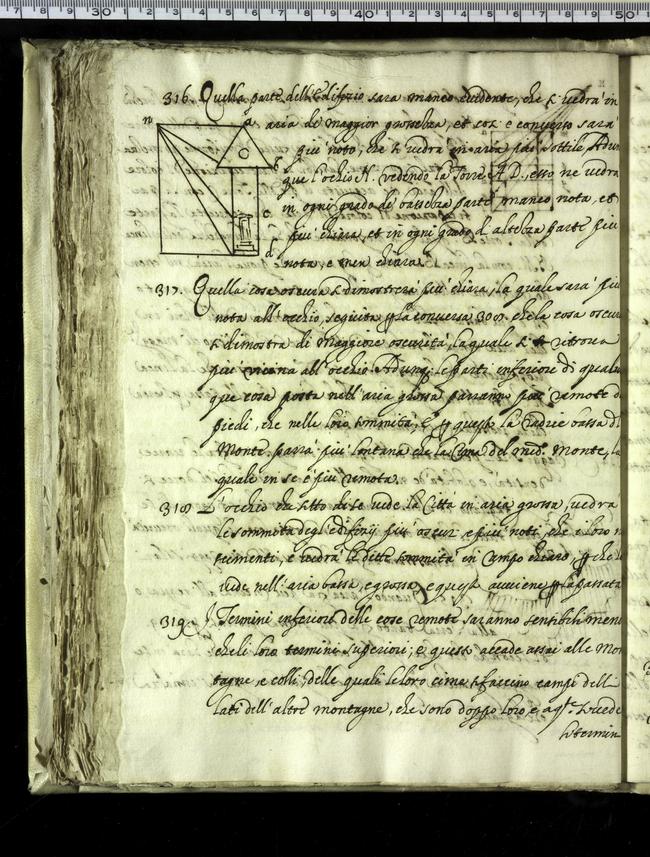 316. Quella parte dell'Edifizio sara manco evidente, che si vedrà in
n a aria di maggior grossezza, et così e converso sarà
più noto, che si vedrà in aria più sottile, Adun
b que l'occhio N. vedendo la Torre A D., esso ne vedrà
c in ogni grado di bassezza parte manco nota, et
più chiara, et in ogni grado d'altezza parte più
d nota, e men chiara.
317. Quella cosa oscura si dimostrerà più chiara, la quale sarà più
nota all'occhio, seguita la conversa che la cosa oscura
si dimostra di maggiore oscurità, la quale si ritrova
più vicina all'occhio. Adunq. le parti inferiori di qualun
que cosa posta nell'aria grossa parranno più remote da
piedi, che nelle loro sommità, e questo la radice bassa del
Monte parrà più lontana che la Cima del med. Monte, la
quale in se è più remota.
318 L'occhio che sotto di se vede la Città in aria grossa, vedrà
le sommità degl'edifizij più oscuri, e più noti, che i loro
scimenti, e vedrà le dette sommità in Campo chiaro, che le
vede nell'aria bassa, e grossa, e questo avviene la passata
319. I Termini inferiori delle cose remote saranno sensibili meno
che li loro termini superiori; e questo accade assai alle Mon
tagne, e colli, delle quali le loro cime si faccino campi delli
lati dell'altre montagne, che sono doppo loro e a
termin